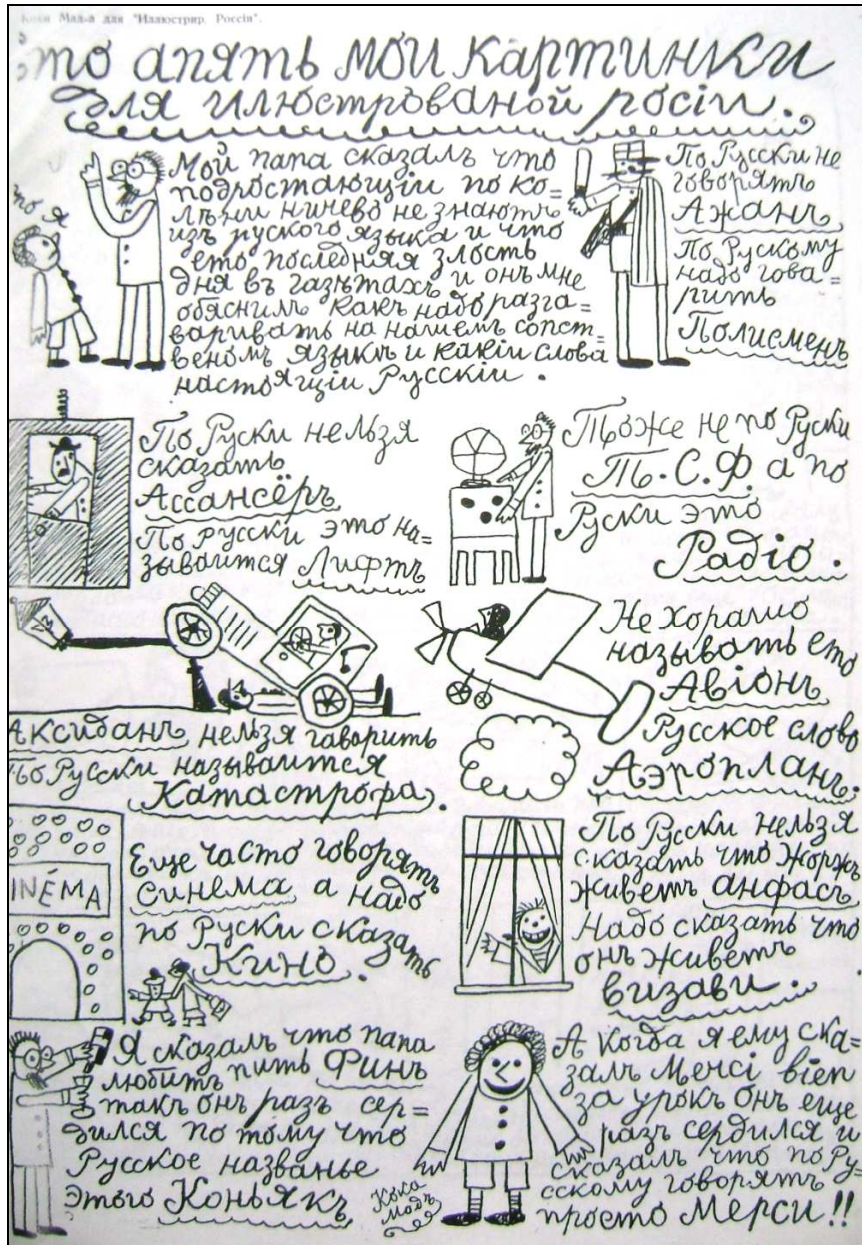 Коля Мад-а для "Иллюстрир. Россіи".
это апять мои картинки
для илюстрованой росіи.
это я
Мой папа сказалъ что
подростающіи по ко=
лѣніи ничево не знаютъ
изъ руского языка и что
ето последняя злость
дня въ газѣтахъ и онъ мне
обяснилъ какъ надо разга=
варивать на нашемъ сопст=
веномъ языкѣ и какіи слова
настоящіи Русскіи.
По Русски не
говорятъ
Ажанъ
По Рускому
надо гова=
рить
Полисменъ
По Руски нельзя
сказать
Ассансёръ
По русски это на=
зываится Лифтъ
Тоже не по Руски
Т.С.Ф. а по
Руски это
Радіо.
Аксиданъ нельзя гаворить
По Русски называится
Катастрофа.
Не хорашо
называть ето
Авіонъ
Русское слово
Аэропланъ.
INÉMA
Еще часто говорятъ
синема а надо
по Руски сказать
Кино.
По Русски нельзя
сказать что Жоржъ
живетъ анфасъ
Надо сказать что
онъ живетъ
визави.
Я сказалъ что папа
любитъ пить Финъ
такъ онъ разъ сер=
дился по тому что
Русское названье
этого Коньякъ
Кока
Модъ
А когда я ему ска=
залъ Менсі віеп
за урокъ онъ еще
разъ сердился и
сказалъ что по Ру=
сскому говорятъ
просто Мерси!!